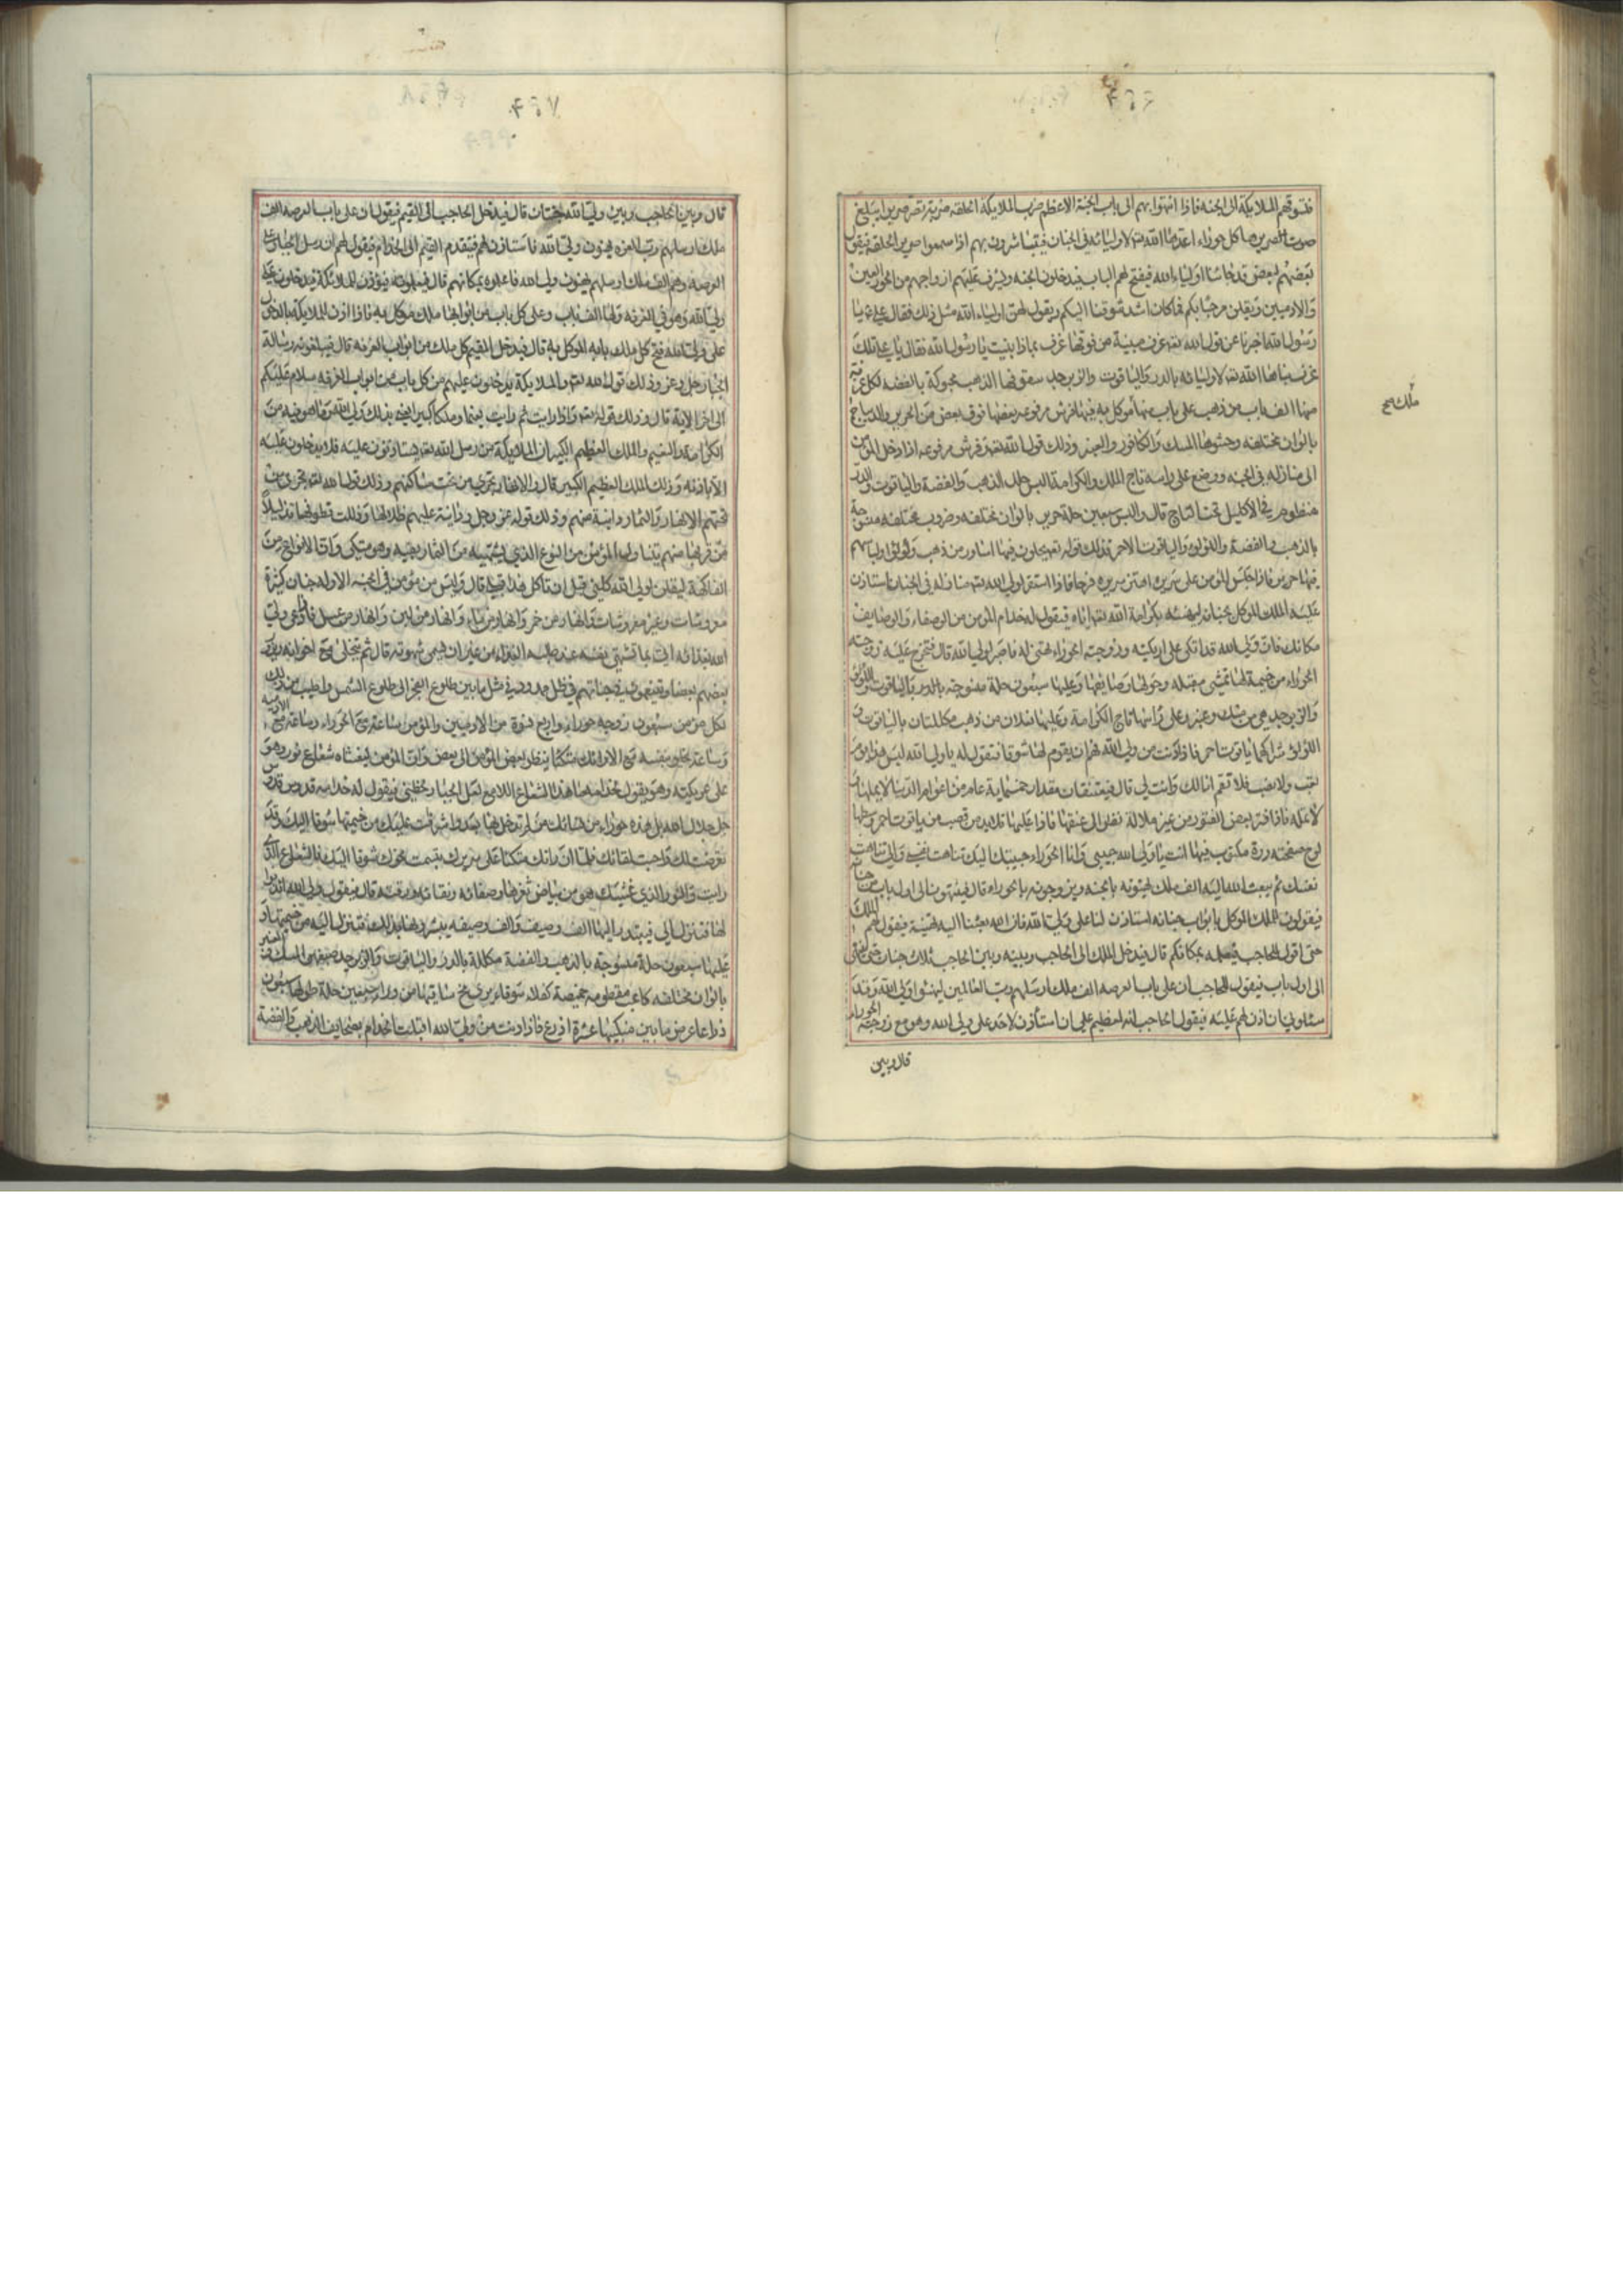 فتسوقهم الملايكة الى الجنة فاذا انتهوا بهم الى باب الجنة الاعظم ضرب الملايكة الحلقة ضربة تصر صريرا يبلغ
صوت صريرها كل حوراء اعدها الله تعالى لاوليائه فى الجنان فيتباشرون بهم اذا سمعوا صرير الحلقة فيقول
بعضهم لبعض قد جائنا اولياء الله فيفتح لهم الباب فيدخلون الجنه وليشرف عليهم ازواجهم من الحور العين
والادميين ويقلن مرحبا بكم فما كان اشد شوقنا اليكم ويقول لهن اولياء الله مثل ذلك فقال على ع يا
رسول الله اخبرنا عن قول الله تعالى غرف مبنية من فوقها غرف بماذا بنيت يا رسول الله فقال يا على تلك
غرف بناها الله تعالى لاوليائه بالدر والياقوت والزبرجد سقوفها الذهب محبوكة بالفضه لكل غرفة
منها الف باب من ذهب على باب منها موكل به فيها فرش مرفوعه بعضها فوق بعض من الحرير والديباج
ملك صح
بالوان مختلفه وحشوها المسك والكافور والعنبر وذلك قول الله تعالى وفرش مرفوعه اذا دخل المؤمن
الى منازله فى الجنه ووضع على راسه تاج الملك والكرامة البس حلل الذهب والفضة والياقوت والدر
منظوم فى الاكليل تحت التاج قال والبس سبعين حلة حرير بالوان مختلفه وضروب مختلفه منسوجة
بالذهب والفضة واللؤلؤ والياقوت الاحمر فذلك قوله تعالى يحلون فيها اساور من ذهب ولؤلؤا ولباسهم
فيها حرير فاذا جلس المؤمن على سريره اهتز سريره فرحا فاذا استقر لولى الله تعالى منازله فى الجنان استاذن
عليه الملك الموكل بجنانه ليهنئه بكرامة الله تعالى اياه فيقول له خدام المؤمن من الوصفاء والوصايف
مكانك فان ولى الله قد اتكى على اريكته وزوجته الحوراء تهنى له فاصبر لولى الله قال فتخرج عليه زوجته
الحوراء من خيمة لها تمشى مقبله وحولها وصايفها وعليها سبعون حلة منسوجة بالدر والياقوت واللؤلؤ
والزبرجد هى من مسك وعنبر وعلى راسها تاج الكرامة وعليها نعلان من ذهب مكللتان بالياقوت و
اللؤلؤ شراكهما ياقوت احمر فاذا دنت من ولى الله فهم ان يقوم لها شوقا فتقول له يا ولى الله ليس هذا يوم
تعب ولا نصب فلا تقم انا لك وانت لى قال فيعتنقان مقدار خمسماية عام من اعوام الدنيا لا يملها و
لا تمله فاذا فتر بعض الفتور من غير ملالة نظر الى عنقها فاذا عليها قلايد من قصب من ياقوت احمر وسطها
لوح صفحته درة مكتوب فيها انت يا ولى الله حبيبى وانا الحوراء حبيبتك اليك تناهت نفسى والى تناهت
نفسك ثم يبعث الله اليه الف ملك يهنونه بالجنه ويزوجونه بالحوراء قال فينتهون الى اول باب من جنانه
فيقولون للملك الموكل بابواب جنانه استاذن لنا على ولى الله فان الله بعثنا اليه لنهنيه فيقول لهم الملك
حتى اقول للحاجب فيعلمه بمكانكم قال فيدخل الملك الى الحاجب وبينه وبين الحاجب ثلاث جنان حتى ينتهى
الى اول باب فيقول للحاجب ان على باب العرصه الف ملك ارسلهم رب العالمين ليهنئوا ولى الله وقد
سئلونى ان اذن لهم عليه فيقول الحاجب انه لعظيم على ان استأذن لاحد على ولى الله وهو مع زوجته الحوراء
قال وبين
قال وبين الحاجب وبين ولى الله جنتان قال فيدخل الحاجب الى القيم فيقول ان على باب العرصه الف
ملك ارسلهم رب العزه يهنون ولى الله فاستاذن لهم فيتقدم القيم الى الخدام فيقول لهم ان رسل الجبار على
العرصة وهم الف ملك ارسلهم يهنون ولى الله فاعلموه بمكانهم قال فيعلمونه فيؤذن للملائكة فيدخلون على
ولى الله وهو فى الغرفه ولها الف باب وعلى كل باب من ابوابها ملك موكل به فاذا اذن للملايكة بالدخول
على ولى الله فتح كل ملك بابه الموكل به قال فيدخل القيم كل ملك من ابواب الغرفه قال فيبلغونه رسالة
الجبار جل وعز وذلك قول الله تعالى والملايكة يدخلون عليهم من كل باب من ابواب الغرفه سلام عليكم
الى اخر الاية قال وذلك قوله تعالى واذا رايت ثم رايت نعيما وملكا كبيرا يعنى بذلك ولى الله وما هو فيه من
الكرامة والنعيم والملك العظيم الكبير ان الملايكة من رسل الله تعالى يستاذنون عليه فلا يدخلون عليه
الا باذنه وذلك الملك العظيم الكبير قال والانهار تجرى من تحت مساكنهم وذلك قول الله تعالى تجرى من
تحتهم الانهار والثمار دانية منهم وذلك قوله عز وجل ودانية عليهم ظلالها وذللت قطوفها تذليلا
من قربها منهم يتناول المؤمن من النوع الذى يشتهيه من الثمار بفيه وهو متكى وان الانواع من
الفاكهة ليقلن لولى الله كلنى قبل ان تاكل هذا قبلى قال وليس من مؤمن فى الجنه الا وله جنان كثيرة
معروشات وغير معروشات وانهار من خمر وانهار من ماء وانهار من لبن وانهار من عسل فاذا دعى ولى
الله بغذائه اتى بما تشتهى نفسه عند طلبه الغذاء من غير ان يسمى شهوته قال ثم يتخلى مع اخوانه ويزور
بعضهم بعضا ويتنعمون فى جناتهم فى ظل ممدود فى مثل ما بين طلوع الفجر الى طلوع الشمس واطيب من ذلك
لكل مؤمن سبعون زوجه حوراء واربع نسوة من الادميين والمؤمن ساعة مع الحوراء وساعة مع الادميه
وساعة يخلو بنفسه مع الارائك متكئا ينظر بعض المؤمنين الى بعض وان المؤمن ليغشاه شعاع نور وهو
على اريكته وهو يقول لخدامه ما هذا الشعاع اللامع لعل الجبار لحظنى فيقول له خدامه قدوس قدوس
جل جلال الله بل هذه حوراء من نسائك ممن لم تدخل بها بعد واشرفت عليك من خيمتها شوقا اليك وقد
تعرضت لك واحبت لقائك فلما ان راتك متكئا على سريرك تبسمت نحوك شوقا اليك فالشعاع الذى
رايت والنور الذى غشيك هو من بياض ثغرها وصفائه ونقائه ورقته قال فيقول ولى الله ائذنوا
لها فتنزل الى فيبتدر اليها الف وصيف والف وصيفه يبشرونها بذلك فتنزل اليه من خيمتها و
عليها سبعون حلة منسوجة بالذهب والفضة مكللة بالدر والياقوت والزبرجد صبغهن المسك والعنبر
بالوان مختلفه كاعب مقطومه خميصة كفلاء سوقاء يرى مخ ساقيها من وراء سبعين حلة طولها سبعون
ذراعا عرض ما بين منكبيها عشرة اذرع فاذا دنت من ولى الله اقبلت الخدام بصحايف الذهب والفضة